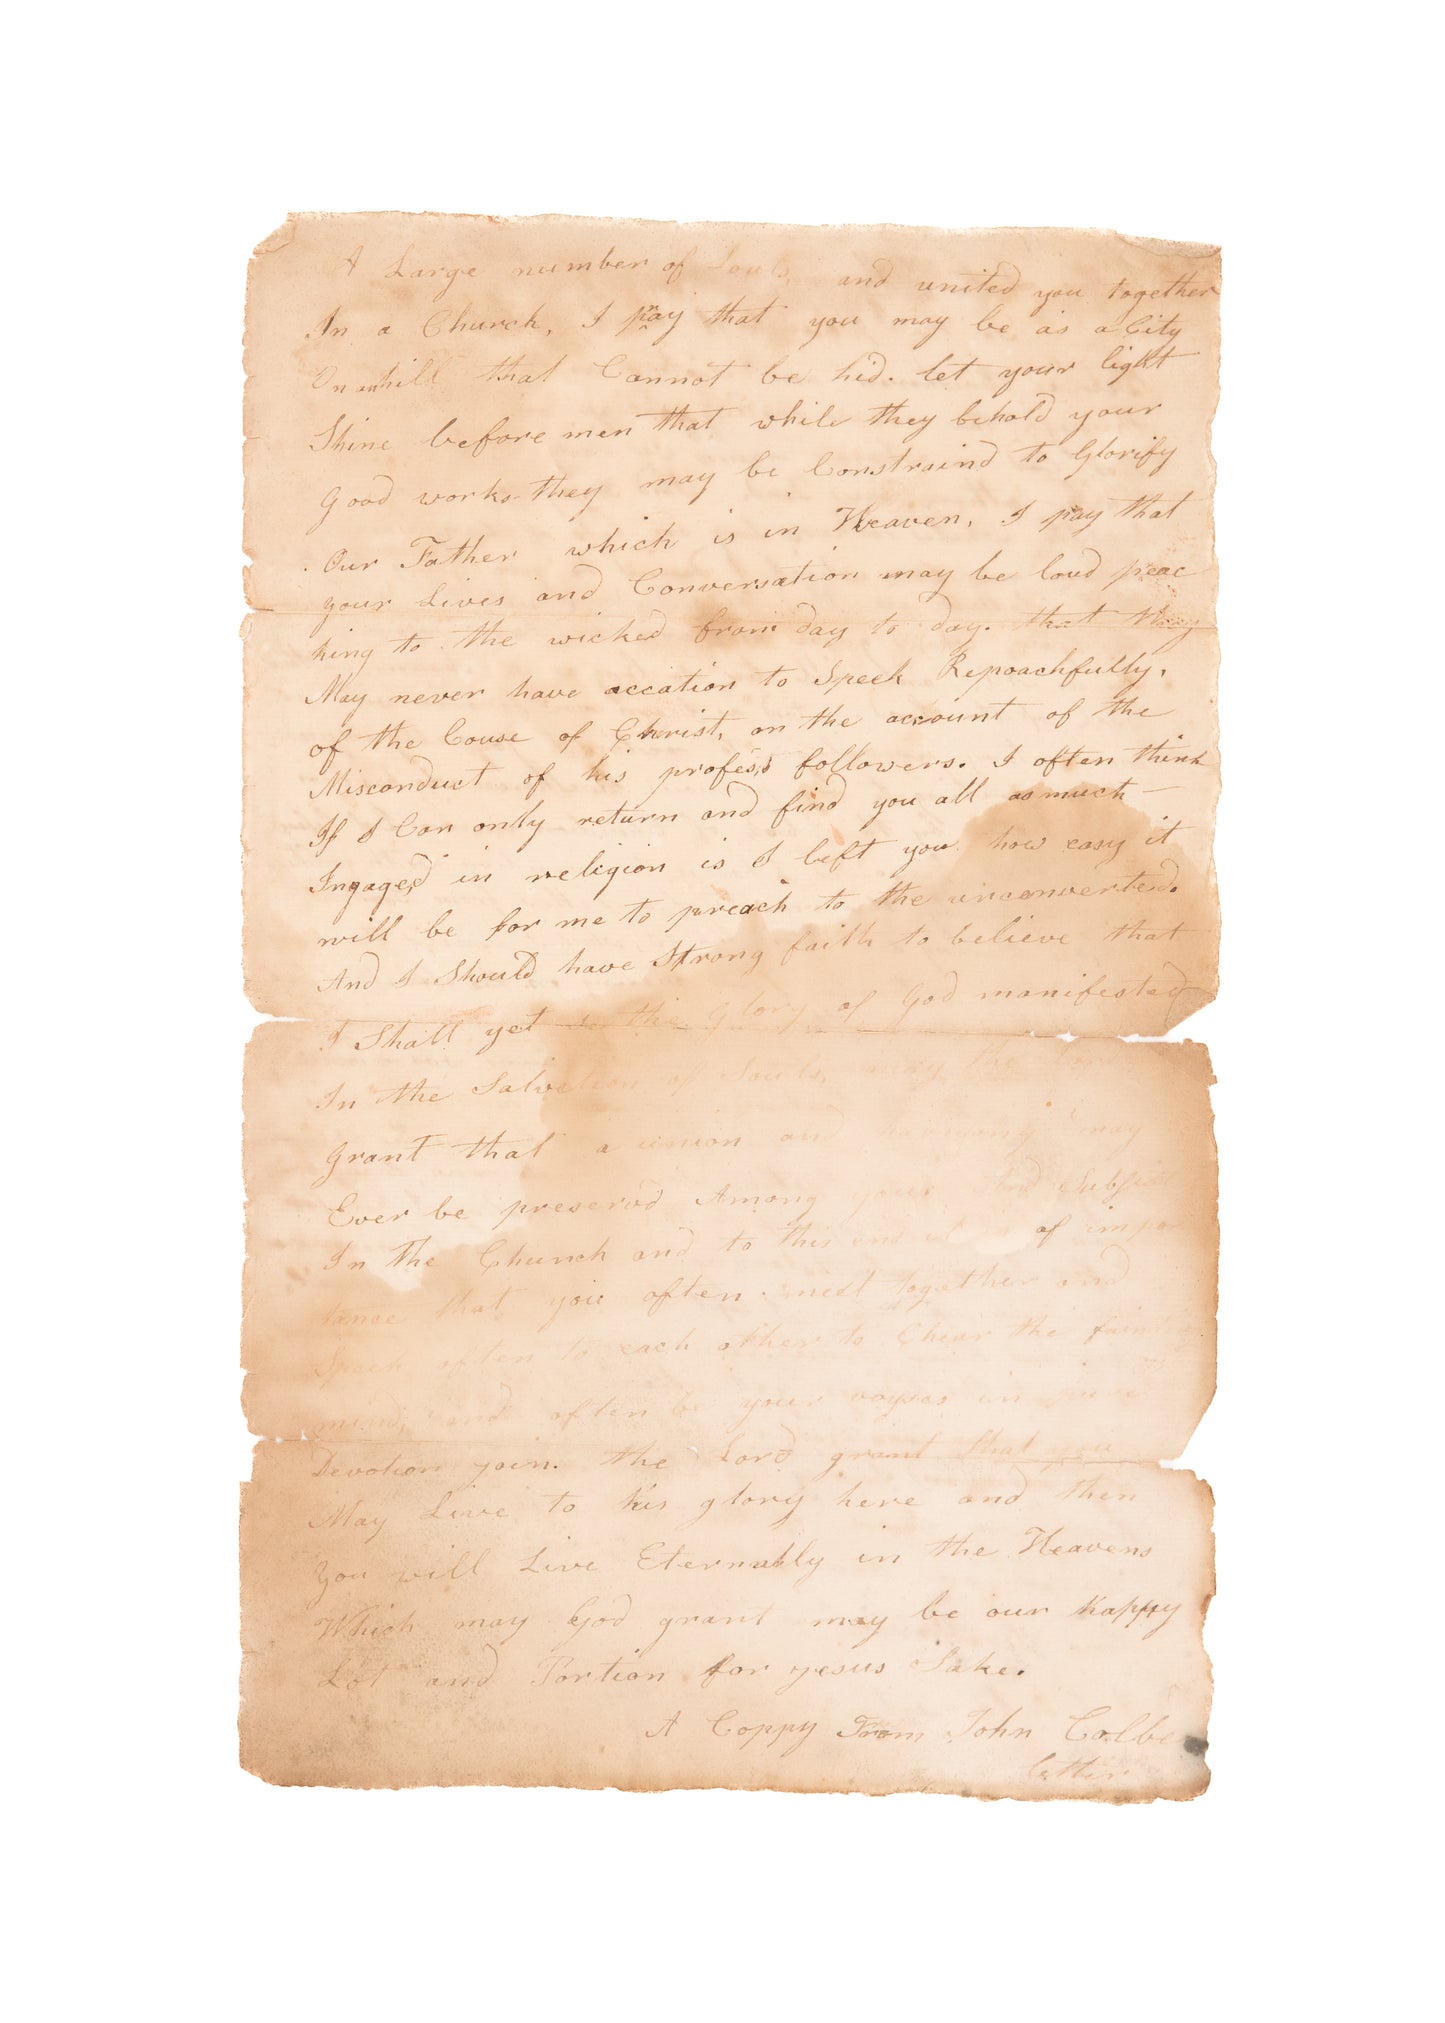 A Large number of Souls, and united you together
In a Church, I pray that you may be as a City
On an hill that Cannot be hid. let your light
Shine before men that while they behold your
Good works they may be Constraind to Glorify
Our Father which is in Heaven, I pay that
your Lives and Conversation may be loud preac
hing to the wicked from day to day. that they
May never have accation to Speek Repoachfully,
of the Couse of Christ, on the account of the
Misconduct of his profess,d followers. I often think
If I Can only return and find you all as much
Ingage,d in religion is I left you how easy it
will be for me to preach to the unconverted.
And I Should have Strong faith to believe that
I Shall yet se the Glory of God manifested
In the Salvation of Souls, may the Lord
Grant that a union and harmony may
Ever be preserv,d Among your And Subsist
In The Church and to this end it is of impor
tance that you often meet together and
Speek often to each other to Chear the fainting
mind, and often be your voyses in
Devotion join. the Lord grant that you
May Live to his glory here and then
You will Live Eternally in the Heavens
Which may God grant may be our happy
Lot and Portion for yesus Sake.
A Coppy From John Colbe
letter